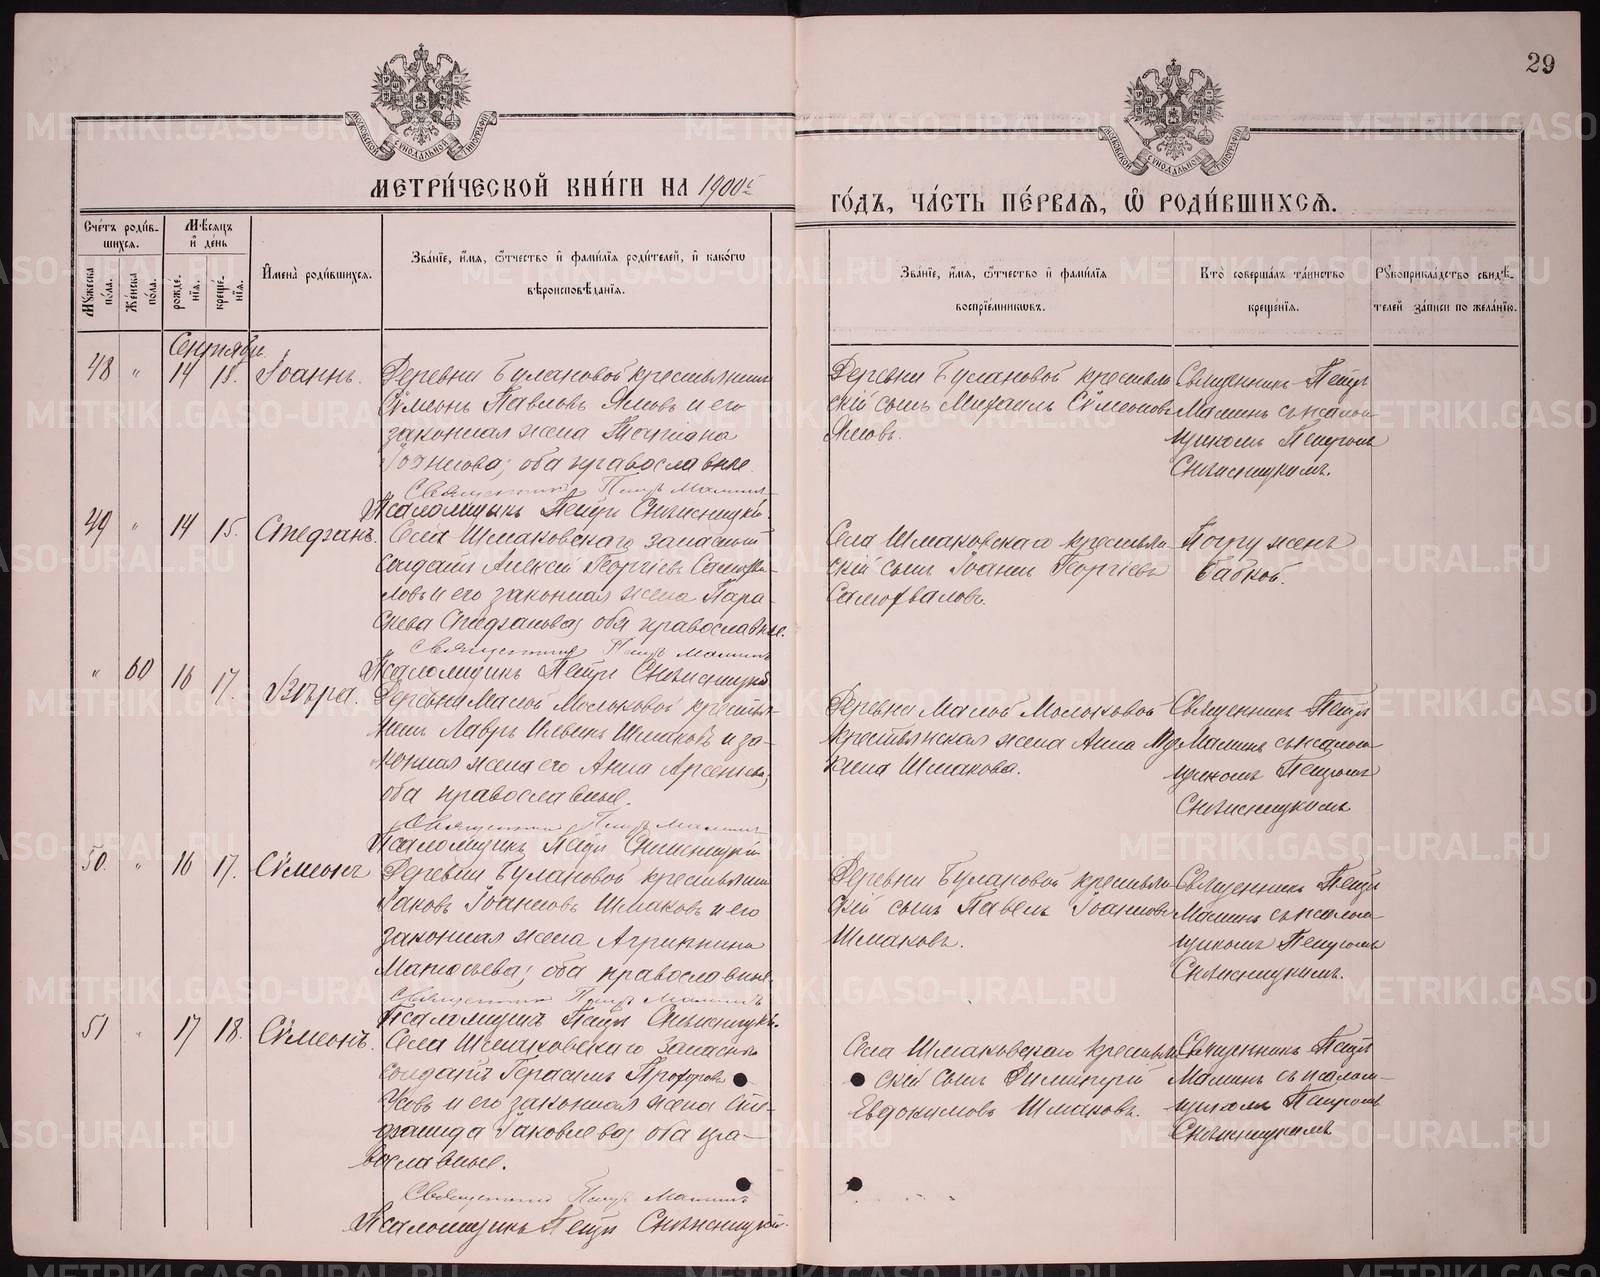 29
МОСКОВСКОЙ СѴНОДАЛЬНОЙ ТИПОГРАФІИ
МОСКОВСКОЙ СѴНОДАЛЬНОЙ ТИПОГРАФІИ
МЕТРИ́ЧЕСКОЙ КНИ́ГИ НА 1900й
ГО́ДЪ, ЧА́СТЬ ПЕ́РВАЯ, Ѡ҆ РОДИ́ВШИХСЯ.
Сче́тъ роди́вшихся.
Мꙋ́жеска по́ла.
Же́нска по́ла.
Мѣ́сяцъ и҆ де́нь
рожде́нїя.
креще́нїя.
И҆мена̀ роди́вшихся.
Зва́нїе, и҆́мя, ѻ҆́тчество и҆ фами́лїя роди́телей, и҆ како́гѡ
вѣроисповѣ́данїя.
Зва́нїе, и҆́мя, ѻ҆́тчество и҆ фами́лїя
воспрїе́мникѡвъ.
Кто̀ соверша́лъ та́инство
креще́нїя.
Рꙋкоприкла́дство свидѣ́телей за́писи по жела́нїю.
Сентябрь.
48 " 14 15. Іоаннъ.
Деревни Булановой крестьянинъ
Сѵмеонъ Павловъ Ямовъ и его
законная жена Татіана
Іоаннова; оба православные.
Священникъ Петръ Маминъ
Псаломщикъ Петръ Снѣжницкій.
Деревни Булановой крестьян-
скій сынъ Михаилъ Сѵмеоновъ
Ямовъ.
Священникъ Петръ
Маминъ съ псалом-
щикомъ Петромъ
Снѣжницкимъ.
49 " 14 15. Стефанъ.
Села Шмаковскаго запасный
солдатъ Алексій Георгіевъ Самохва-
ловъ и его законная жена Пара-
скева Стефанова; оба православные.
Священникъ Петръ Маминъ
Псаломщикъ Петръ Снѣжницкій
Села Шмаковскаго крестьян-
скій сынъ Іоаннъ Георгіевъ
Самохваловъ.
Погружена
бабкой.
" 60 16 17. Вѣра.
Деревни Малой Молоковой крестья-
нинъ Лавръ Ильинъ Шмаковъ и за-
конная жена его Анна Арсеньева;
оба православные.
Священникъ Петръ Маминъ
Псаломщикъ Петръ Снѣжницкій
Деревни Малой Молоковой
крестьянская жена Анна
Шмакова.
Священникъ Петръ
Маминъ съ псалом-
щикомъ Петромъ
Снѣжницкимъ
50. " 16 17. Сѵмеонъ
Деревни Булановой крестьянинъ
Іаковъ Іоанновъ Шмаковъ и его
законная жена Агриппина
Матѳеева; оба православные.
Священникъ Петръ Маминъ
Псаломщикъ Петръ Снѣжницкій.
Деревни Булановой крестьян-
скій сынъ Павелъ Іоанновъ
Шмаковъ.
Священникъ Петръ
Маминъ съ псалом-
щикомъ Петромъ
Снѣжницкимъ.
51 " 17 18. Сѵмеонъ.
Села Шмаковскаго запасный
солдатъ Герасимъ Прохоровъ
Усовъ и его законная жена Сте-
фанида Іаковлева; оба пра-
вославные.
Священникъ Петръ Маминъ
Псаломщикъ Петръ Снѣжницкій.
Села Шмаковскаго крестьян-
скій сынъ Димитрій
Евдокимовъ Шмаковъ.
Священникъ Петръ
Маминъ съ псалом-
щикомъ Петромъ
Снѣжницкимъ
METRIKI.GASO-URAL.RU